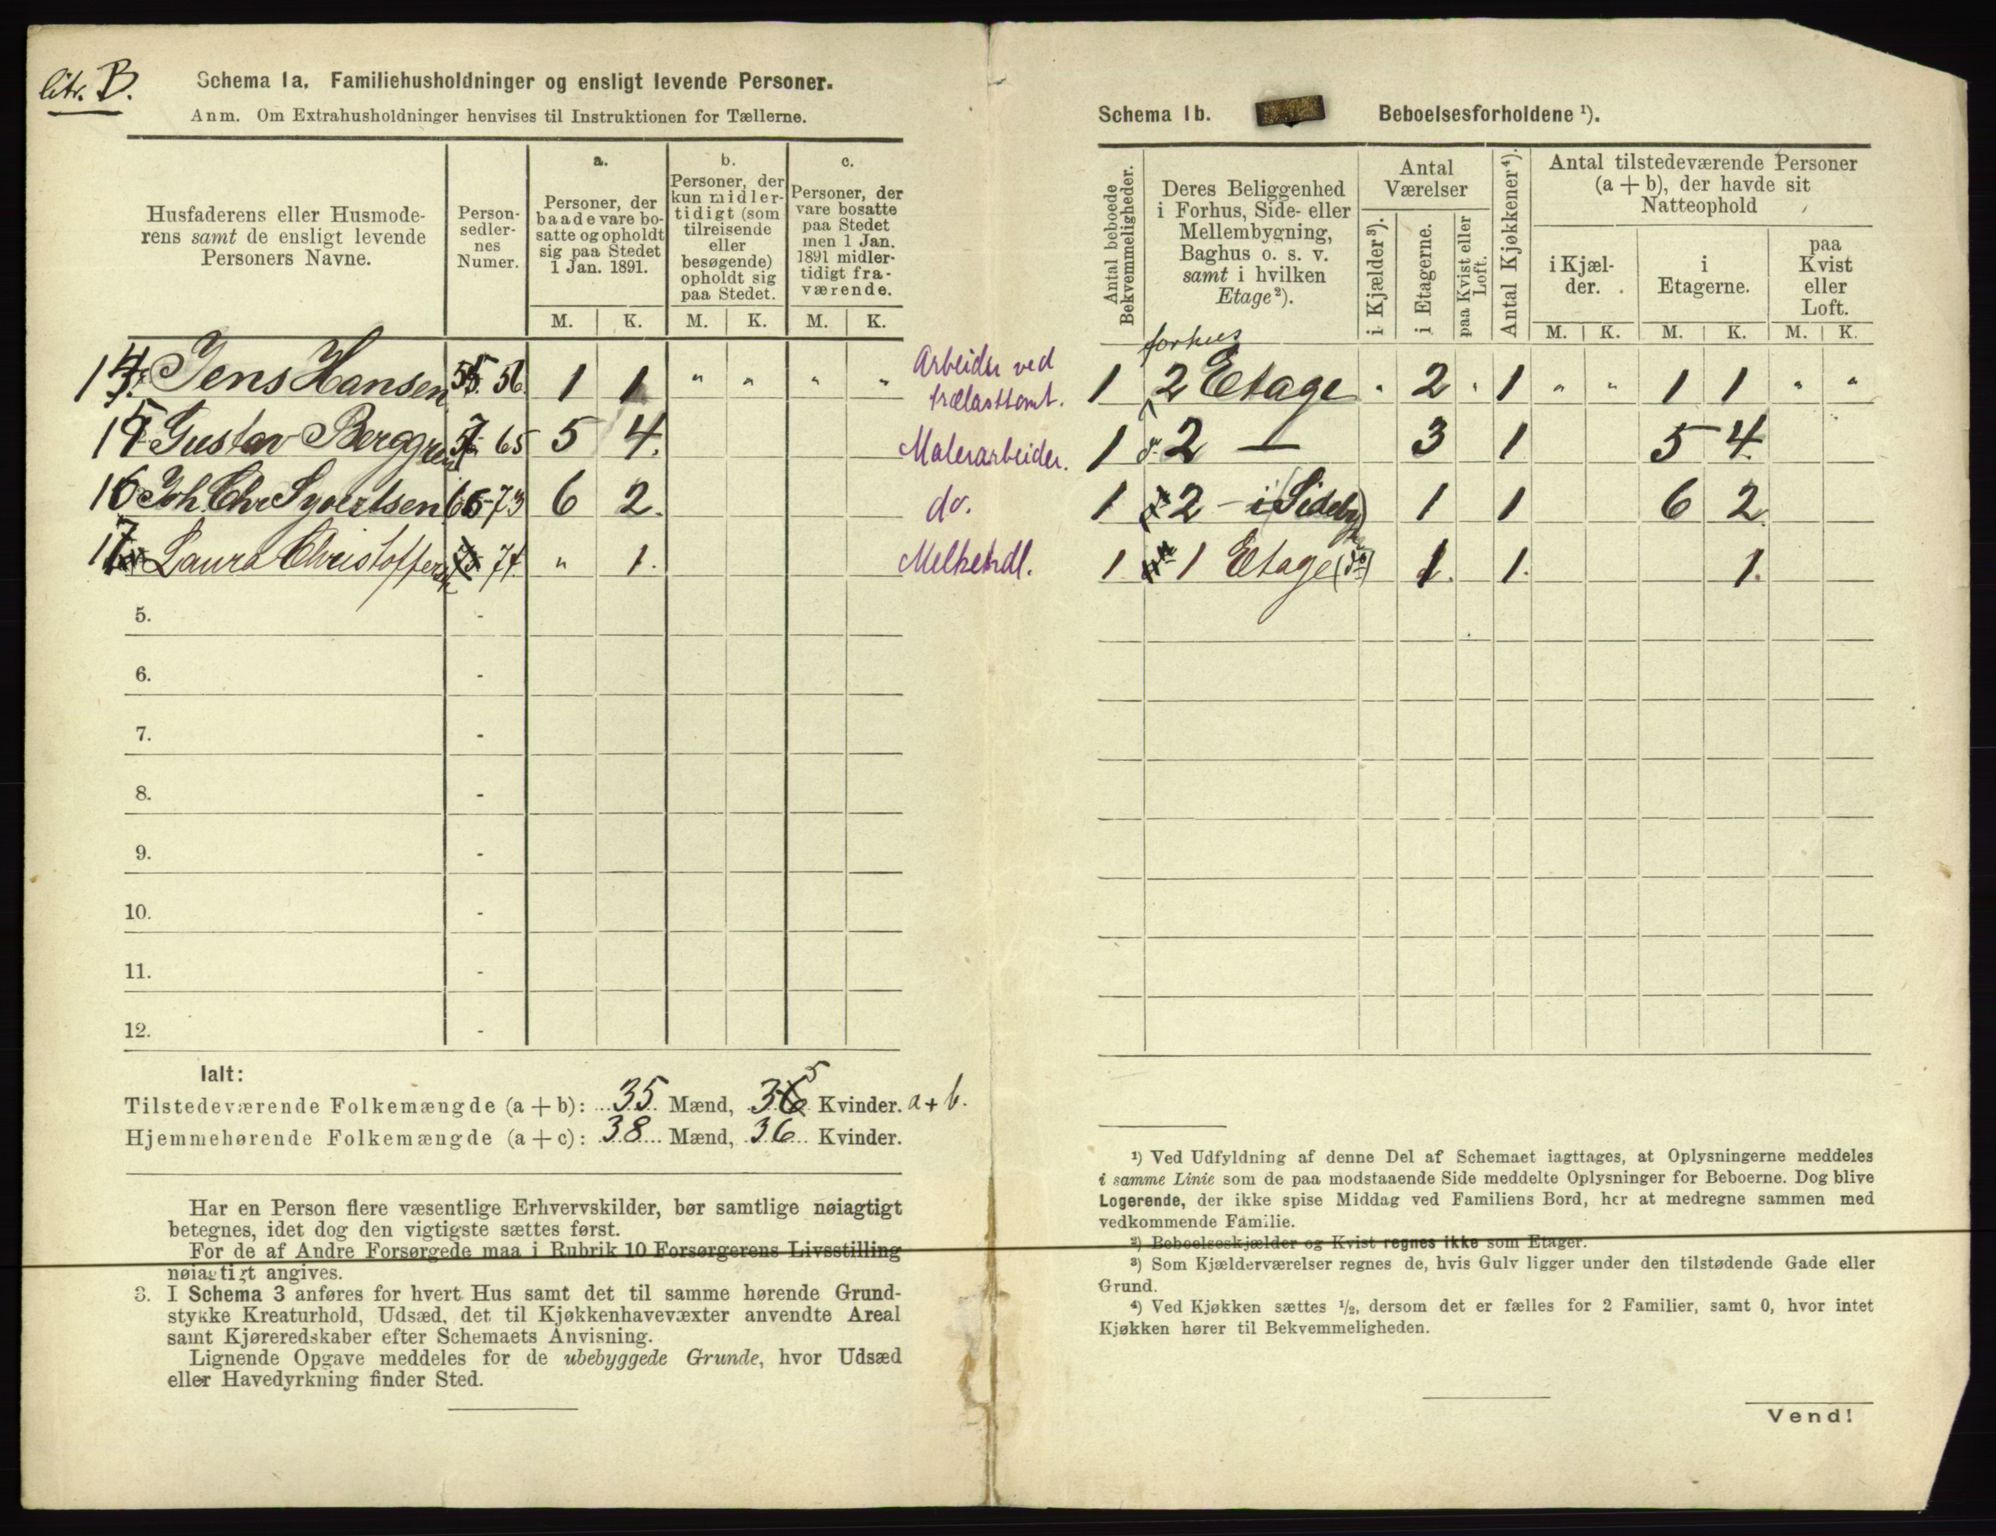 litr. B.
Schema 1a. Familiehusholdninger og ensligt levende Personer.
Anm. Om Extrahusholdninger henvises til Instruktionen for Tællerne.
Husfaderens eller Husmode-
rens samt de ensligt levende
Personers Navne.
Person-
sedler-
nes
Numer.
a.
Personer, der
baade vare bo-
satte og opholdt
sig paa Stedet
1 Jan. 1891.
b.
Personer, der
kun midler-
tidigt (som
tilreisende
eller
besøgende)
opholdt sig
paa Stedet.
c.
Personer, der
vare bosatte
paa Stedet
men 1 Jan.
1891 midler-
tidigt fra-
værende.
M. K. M. K. M. K.
14 Jens Hansen 55. 56. 1 1 " " " " Arbeider ved
trælasttomt.
15 Gustav Berggren 57 - 65 5 4. Malerarbeider.
16 Joh. Chr Syvertsen 66-73 6 2. do.
17 Laura Christoffersen 74. " 1. Melkehdl.
5. -
6. -
7. -
8. -
9. -
10. -
11. -
12. -
Ialt:
Tilstedeværende Folkemængde (a + b): 35 Mænd, 36 5 Kvinder. a + b.
Hjemmehørende Folkemængde (a + c): 38 Mænd, 36 Kvinder.
Har en Person flere væsentlige Erhvervskilder, bør samtlige nøiagtigt
betegnes, idet dog den vigtigste sættes først.
For de af Andre Forsørgede maa i Rubrik 10 Forsørgerens Livsstilling
nøiagtigt angives.
3. I Schema 3 anføres for hvert Hus samt det til samme hørende Grund-
stykke Kreaturhold, Udsæd, det til Kjøkkenhavevæxter anvendte Areal
samt Kjøreredskaber efter Schemaets Anvisning.
Lignende Opgave meddeles for de ubebyggede Grunde, hvor Udsæd
eller Havedyrkning finder Sted.
Schema 1b. Beboelsesforholdene ¹).
Antal beboede
Bekvemmeligheder.
Deres Beliggenhed
i Forhus, Side- eller
Mellembygning,
Baghus o. s. v.
samt i hvilken
Etage²).
Antal
Værelser
i Kjælder³).
i Etagerne.
paa Kvist eller
Loft.
Antal Kjøkkener⁴).
Antal tilstedeværende Personer
(a + b), der havde sit
Natteophold
i Kjæl-
der.
i
Etagerne.
paa
Kvist
eller
Loft.
M. K. M. K. M. K.
forhus
1 2 Etage " 2 " 1 " " 1 1 " "
1 2 — 3 1 5 4.
1 2 - i (Sideby) 1 1 6 2.
1 1 Etage (do) 1. 1. 1.
¹) Ved Udfyldning af denne Del af Schemaet iagttages, at Oplysningerne meddeles
i samme Linie som de paa modstaaende Side meddelte Oplysninger for Beboerne. Dog blive
Logerende, der ikke spise Middag ved Familiens Bord, her at medregne sammen med
vedkommende Familie.
²) Beboelseskjælder og Kvist regnes ikke som Etager.
³) Som Kjælderværelser regnes de, hvis Gulv ligger under den tilstødende Gade eller
Grund.
⁴) Ved Kjøkken sættes ½, dersom det er fælles for 2 Familier, samt 0, hvor intet
Kjøkken hører til Bekvemmeligheden.
Vend!